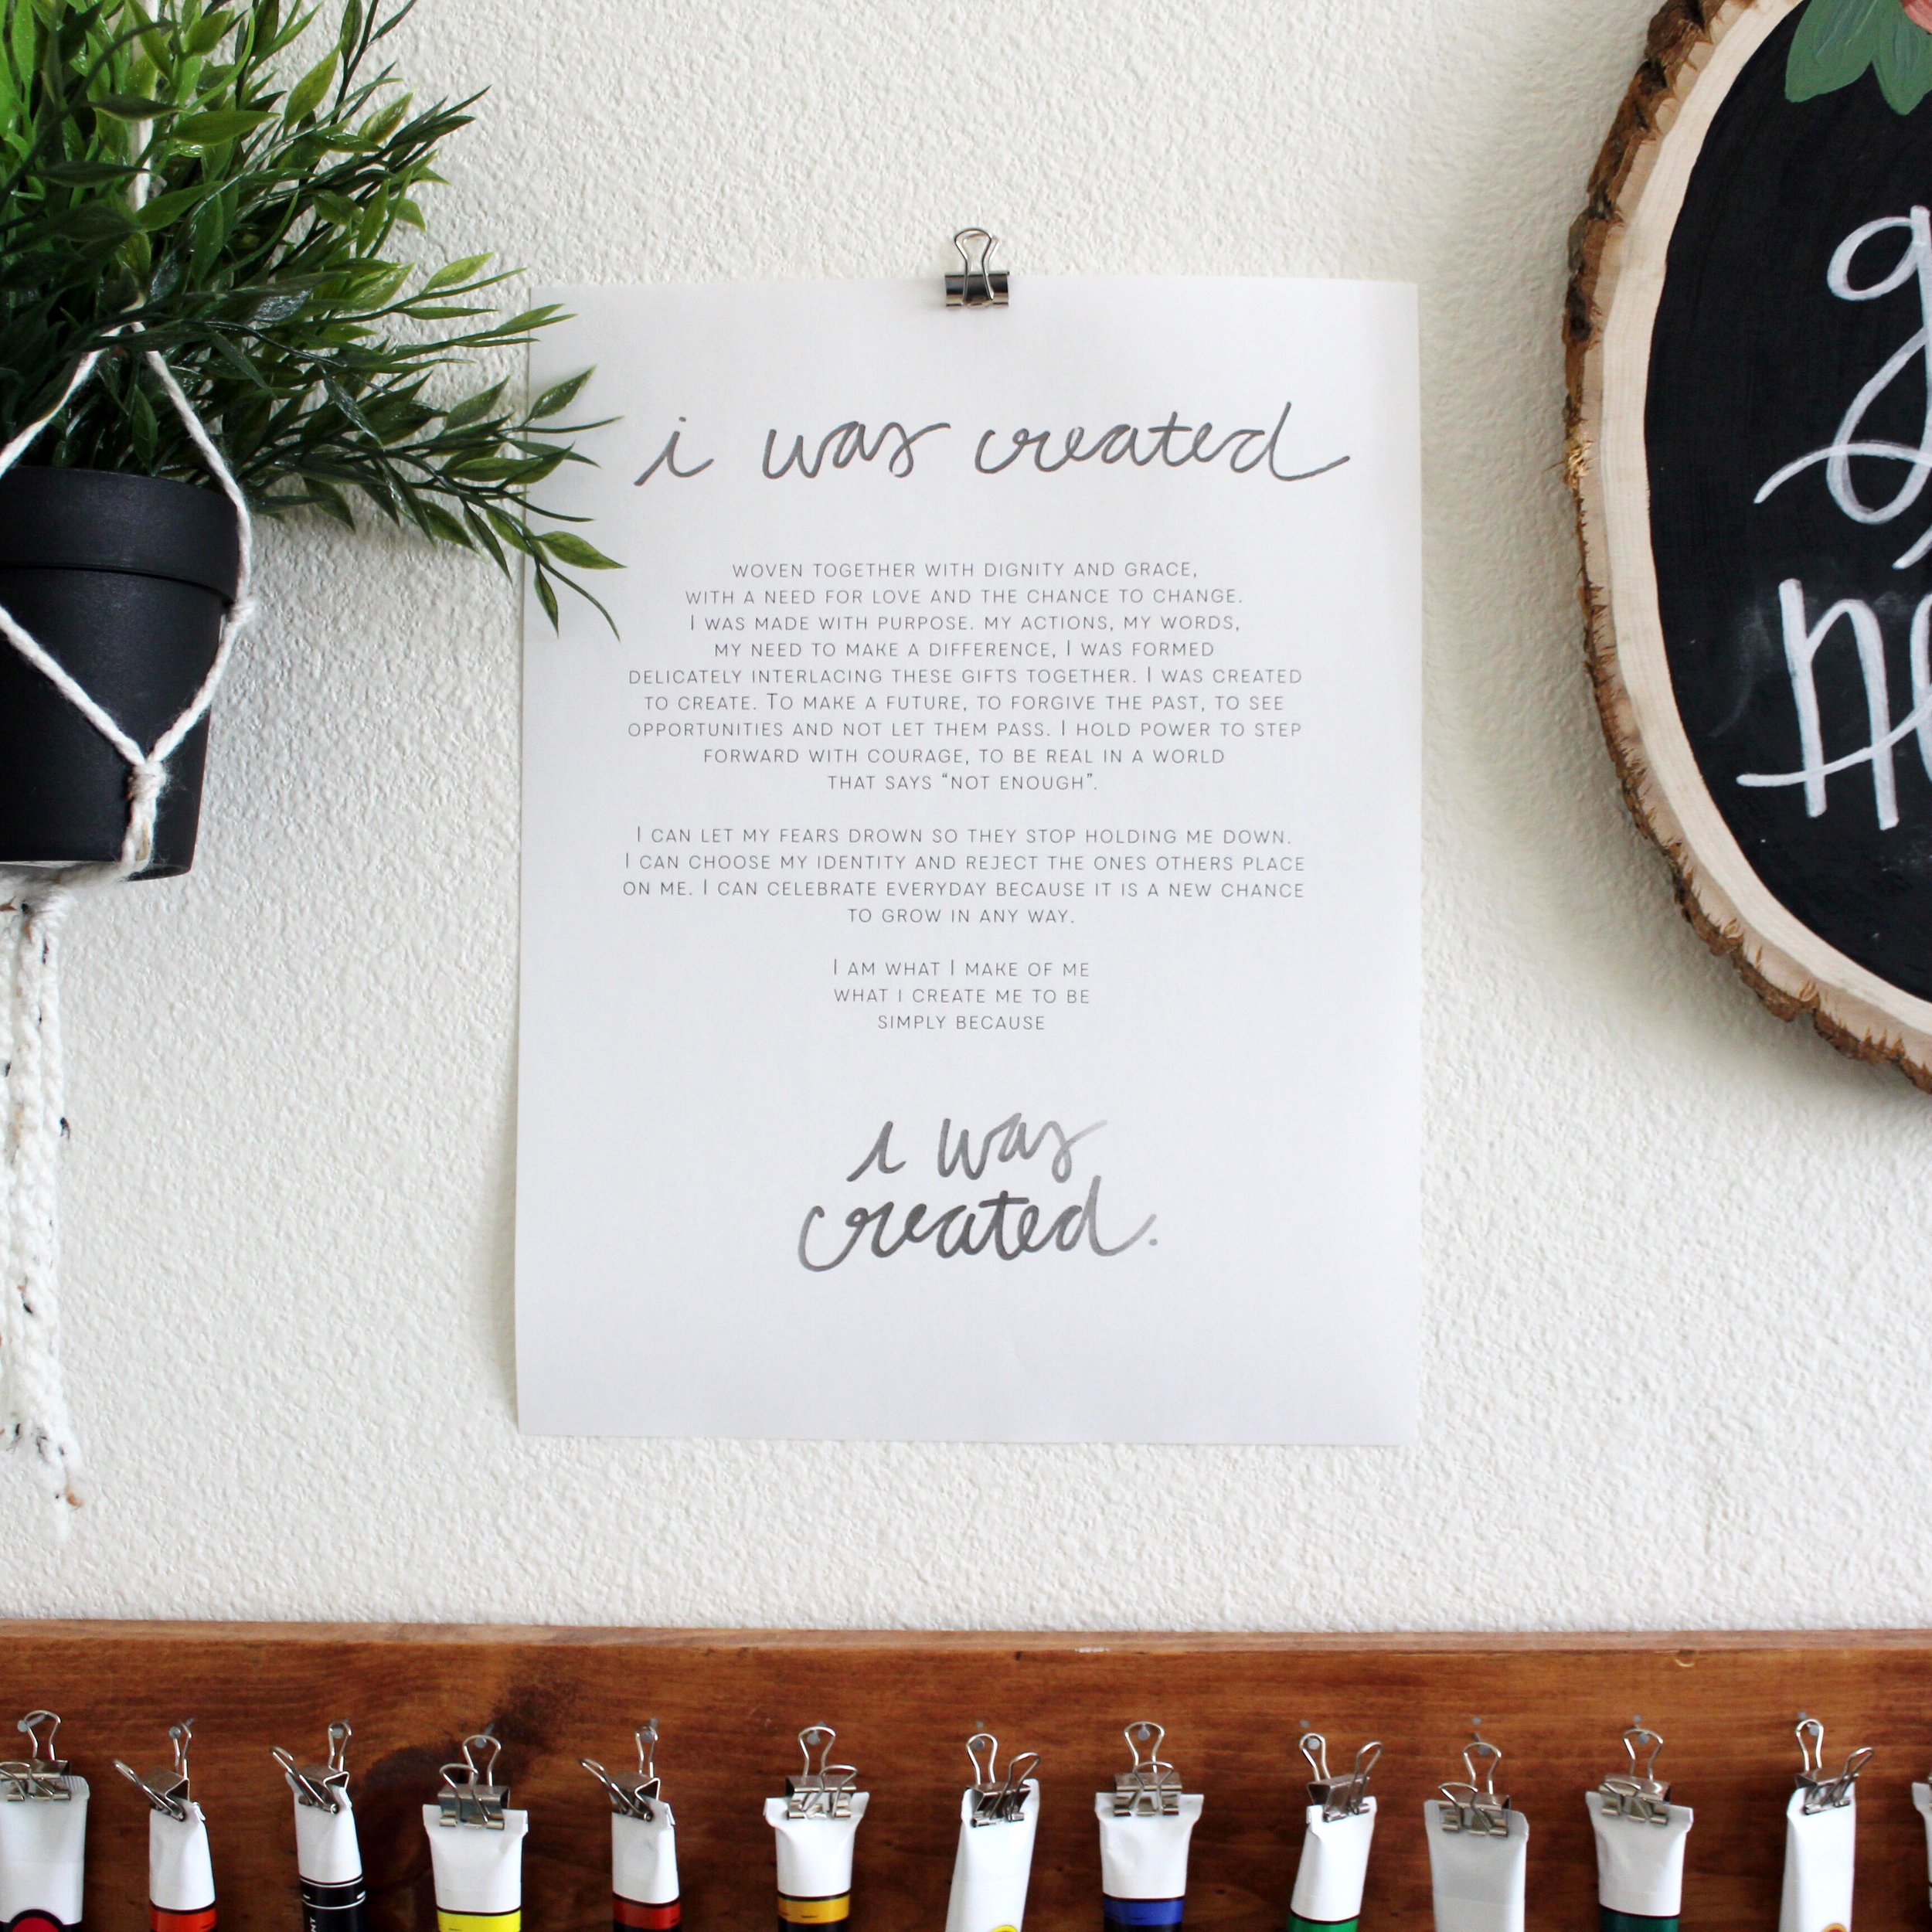 i was created
WOVEN TOGETHER WITH DIGNITY AND GRACE,
WITH A NEED FOR LOVE AND THE CHANCE TO CHANGE.
I WAS MADE WITH PURPOSE. MY ACTIONS, MY WORDS,
MY NEED TO MAKE A DIFFERENCE, I WAS FORMED
DELICATELY INTERLACING THESE GIFTS TOGETHER. I WAS CREATED
TO CREATE. TO MAKE A FUTURE, TO FORGIVE THE PAST, TO SEE
OPPORTUNITIES AND NOT LET THEM PASS. I HOLD POWER TO STEP
FORWARD WITH COURAGE, TO BE REAL IN A WORLD
THAT SAYS “NOT ENOUGH”.
I CAN LET MY FEARS DROWN SO THEY STOP HOLDING ME DOWN.
I CAN CHOOSE MY IDENTITY AND REJECT THE ONES OTHERS PLACE
ON ME. I CAN CELEBRATE EVERYDAY BECAUSE IT IS A NEW CHANCE
TO GROW IN ANY WAY.
I AM WHAT I MAKE OF ME
WHAT I CREATE ME TO BE
SIMPLY BECAUSE
i was
created.